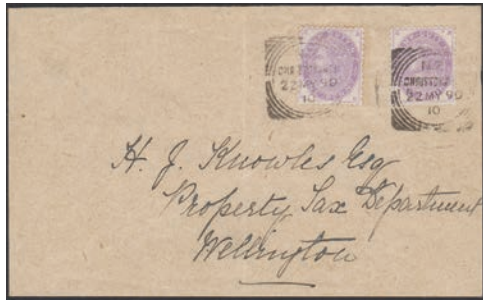 CHRISTCHURCH
22 MY 90
10
CHRISTCH
22 MY 90
10
H. J. Knowles Esq
Property Tax Department
Wellington